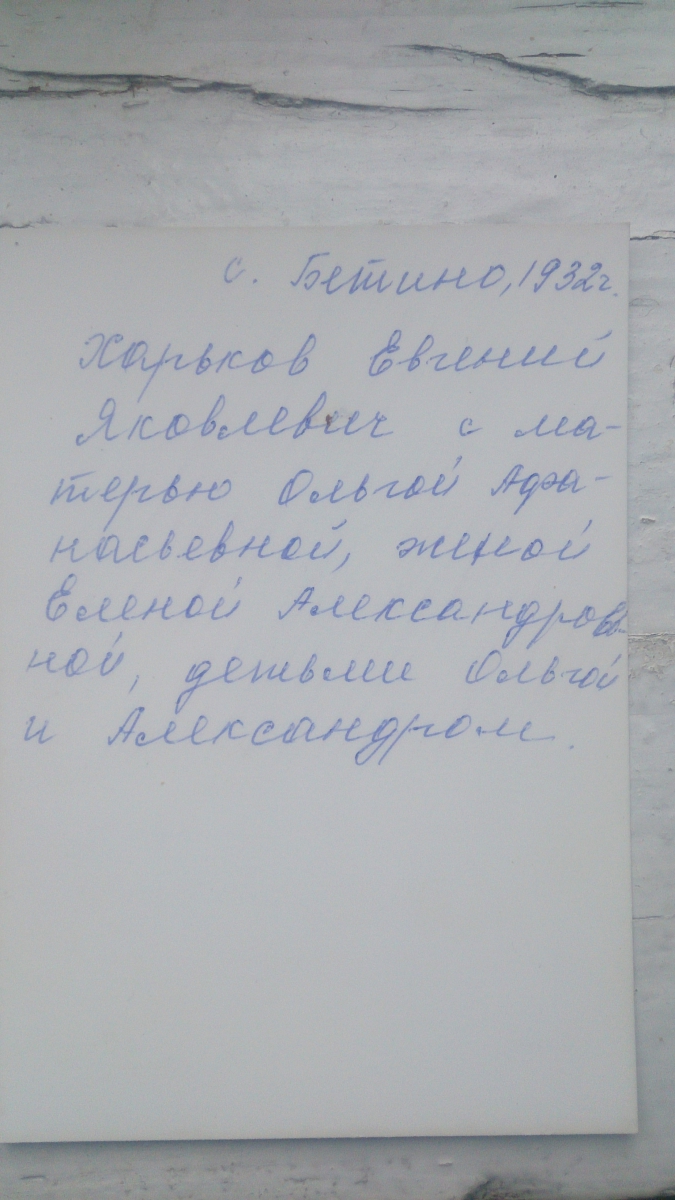 с. Бетино, 1932г.
Харьков Евгений
Яковлевич с ма-
терью Ольгой Афа-
насьевной, женой
Еленой Александров-
ной, детьми Ольгой
и Александром.